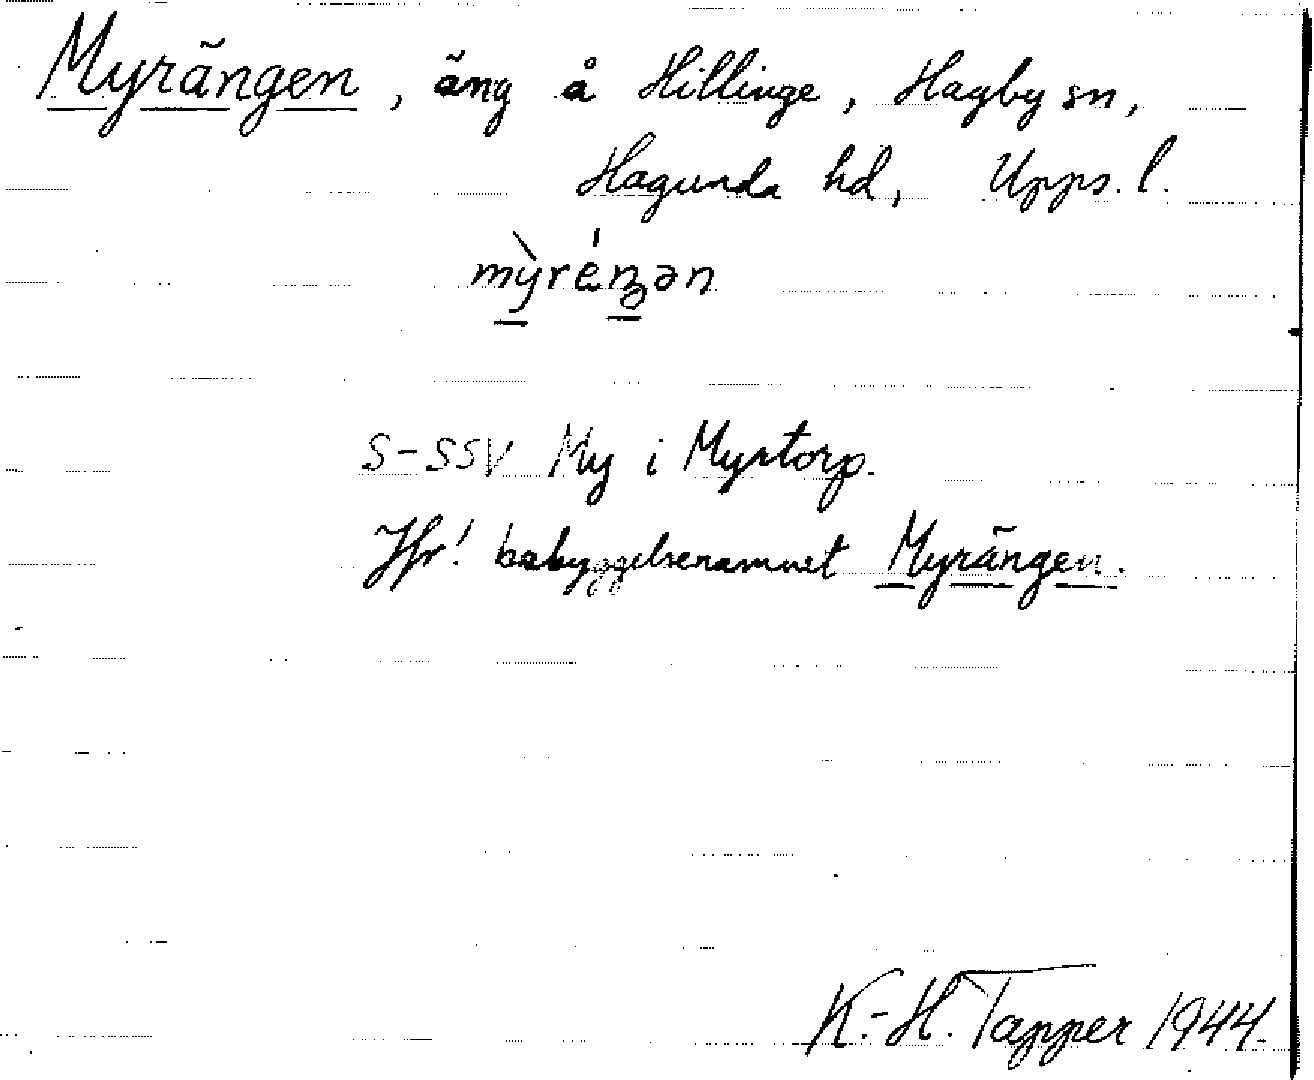 Myrängen, äng å Hillinge, Hagby sn,
Hagunda hd, Upps. l.
mỳréŋən
S-SSV My i Myrtorp.
Jfr! bebyggelsenamnet Myrängen.
K.-H. Tapper 1944.